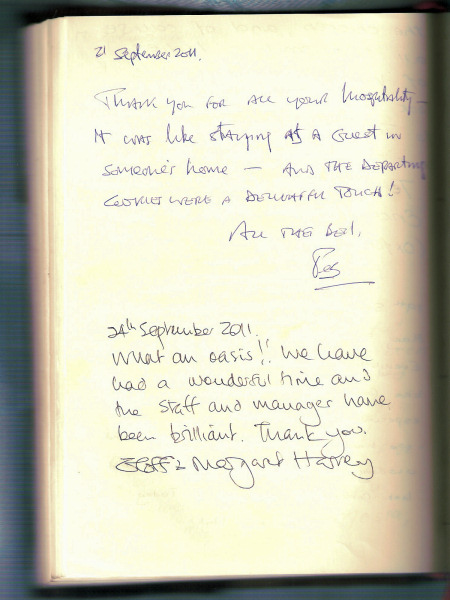 21 September 2011.
Thank you for all your hospitality –
It was like staying as a guest in
someone's home – and the departing
cookies were a delightful touch!
All the best,
24th September 2011.
What an oasis!! We have
had a wonderful time and
the staff and manager have
been brilliant. Thank you.
Margaret Harvey